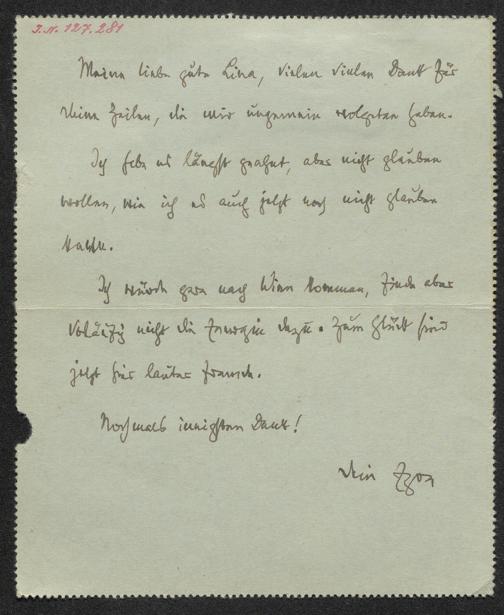 I.N. 127.281
Meine liebe gute Lina, vielen vielen Dank für
deine Zeilen, die mir ungemein wolgetan haben.
Ich habe es längst geahnt, aber nicht glauben
wollen, wie ich es auch jetzt noch nicht glauben
kann.
Ich würde gern nach Wien kommen, finde aber
vorläufig nicht die Energie dazu. Zum Glück sind
jetzt hier lauter Fremde.
Nochmals innigsten Dank!
Dein Egon